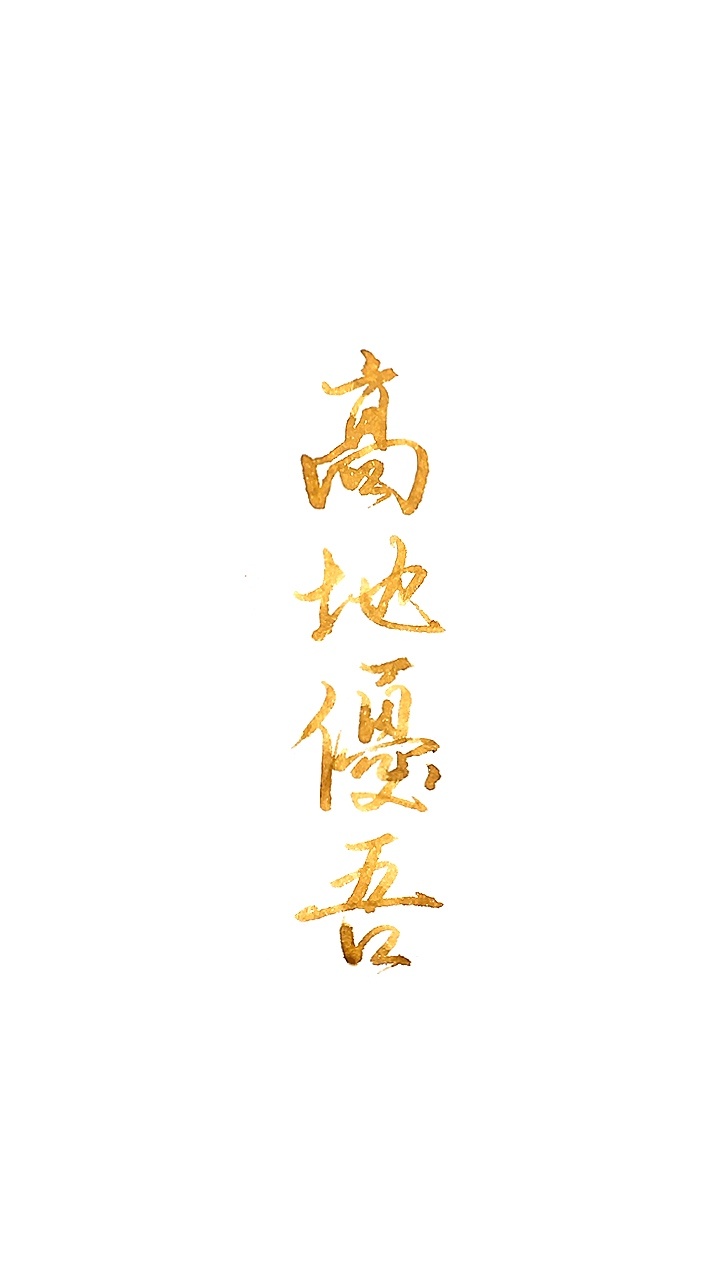 高地優吾